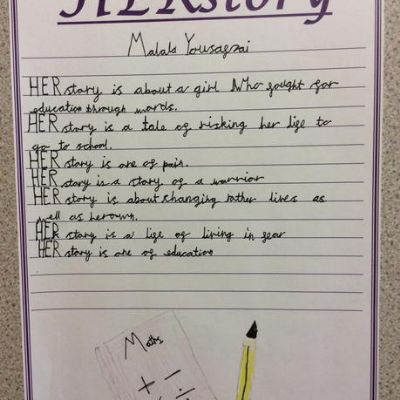 HERstory
Malala Yousagzai
HER story is about a girl Who fought for
education through words.
HER story is a tale of risking her life to
go to school.
HER story is one of pain.
HER story is a story of a warrior
HER story is about changing rather lives as
well as her own.
HER story is a life of living in fear
HER story is one of education
Maths
+ -
÷